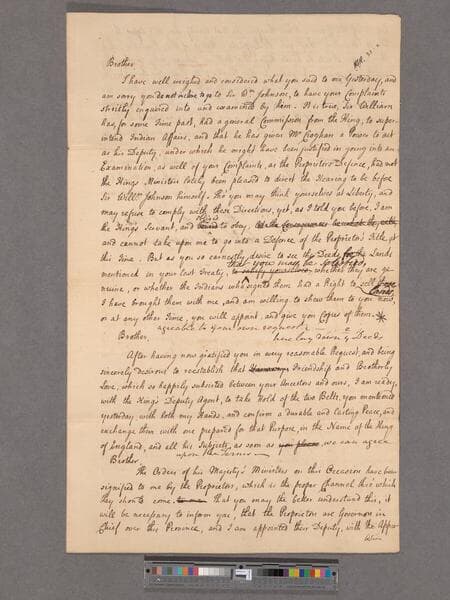 Brother
I have well weighed and considered what you said to me Yesterday, and
am sorry you do not incline to go to Sir Wm Johnson, to have your Complaints
strictly enquired into and examined by him. It is true, Sir William
has, for some Time past, had a general Commission from the King, to super-
intend Indian Affairs, and that he has given Mr Croghan a Power to act
as his Deputy, under which he might have been justified in going into an
Examination, as well of your Complaints, as the Proprietors Defence, had not
the King's Ministers lately been pleased to direct the Hearing to be before
Sir Willm Johnson himself. Tho' you may think yourselves at Liberty, and
may refuse to comply with these Directions, yet, as I told you before, I am
the King's Servant, and obliged to obey, let the Consequences be what they will,
and cannot take upon me to go into a Defence of the Proprietors Title at
this Time. But as you so earnestly desire to see the Deeds for the Lands
that you may be satisfied,
mentioned in your last Treaty, to satisfy yourselves whether they are ge-
nuine, or whether the Indians who signed them had a Right to sell those
Lands
I have brought them with me, and am willing to shew them to you now,
or at any other Time, you will appoint, and give you Copies of them.
agreeable to your own request
here lay down ye Deeds
Brother,
After having now gratified you in every reasonable Request, and being
sincerely desirous to reestablish that Friendship and Brotherly
Love, which so happily subsisted between your Ancestors and ours, I am ready,
with the King's Deputy Agent, to take Hold of the two Belts, you mentioned
yesterday with both my Hands, and confirm a durable and lasting Peace, and
exchange them with one prepared for that Purpose, in the Name of the King
of England, and all his Subjects, as soon as you please we can agree
upon the Terms
Brother
The Orders of his Majesty's Ministers on this Occasion have been
signified to me by the Proprietors, which is the proper Channel thro' which
they should come. that you may the better understand this, it
will be necessary to inform you that the Proprietors are Governors in
Chief over this Province, and I am appointed their Deputy, with the Appro-
bation